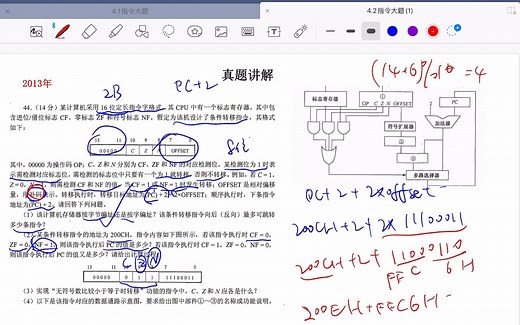 4.1指令大题
4.2指令大题(1)
2013年
2B
PC+2
真题讲解
44.(14分)某计算机采用16位定长指令字格式,其CPU中有一个标志寄存器,其中包
含进位/借位标志CF、零标志ZF和符号标志NF。假定为该机设计了条件转移指令,其格式
如下:
15 11 10 9 8 7 0
00000 C Z N OFFSET
8bit
其中,00000为操作码OP;C、Z和N分别为CF、ZF和NF的对应检测位,某检测位为1时表
示需检测对应标志位,需检测的标志位中只要有一个为1就转移,否则不转移,例如,若C=1,
Z=0,N=1,则需检测CF和NF的值,当CF=1或NF=1时发生转移;OFFSET是相对偏移
量,用补码表示。转移执行时,转移目标地址为(PC)+2+2×OFFSET;顺序执行时,下条指令
地址为(PC)+2。请回答下列问题。
(1)该计算机存储器按字节编址还是按字编址?该条件转移指令向后(反向)最多可跳转
多少条指令?
(2)某条件转移指令的地址为200CH,指令内容如下图所示,若该指令执行时CF=0,
ZF=0,NF=1,则该指令执行后PC的值是多少?若该指令执行时CF=1,ZF=0,NF=0,
则该指令执行后PC的值又是多少?请给出计算过程。
C Z N
15 11 10 9 8 7 0
00000 0 1 1 11100011
(3)实现"无符号数比较小于等于时转移"功能的指令中,C、Z和N应各是什么?
(4)以下是该指令对应的数据通路示意图,要求给出图中部件①~③的名称或功能说明。
=4
标志寄存器
①
OP C Z N OFFSET
PC
2
符号扩展器
加法器
②
③
多路选择器
PC+2+2×offset
200CH+2+2×11100011
200CH+2+11000110
FFC 6H
200EH+FFC6H